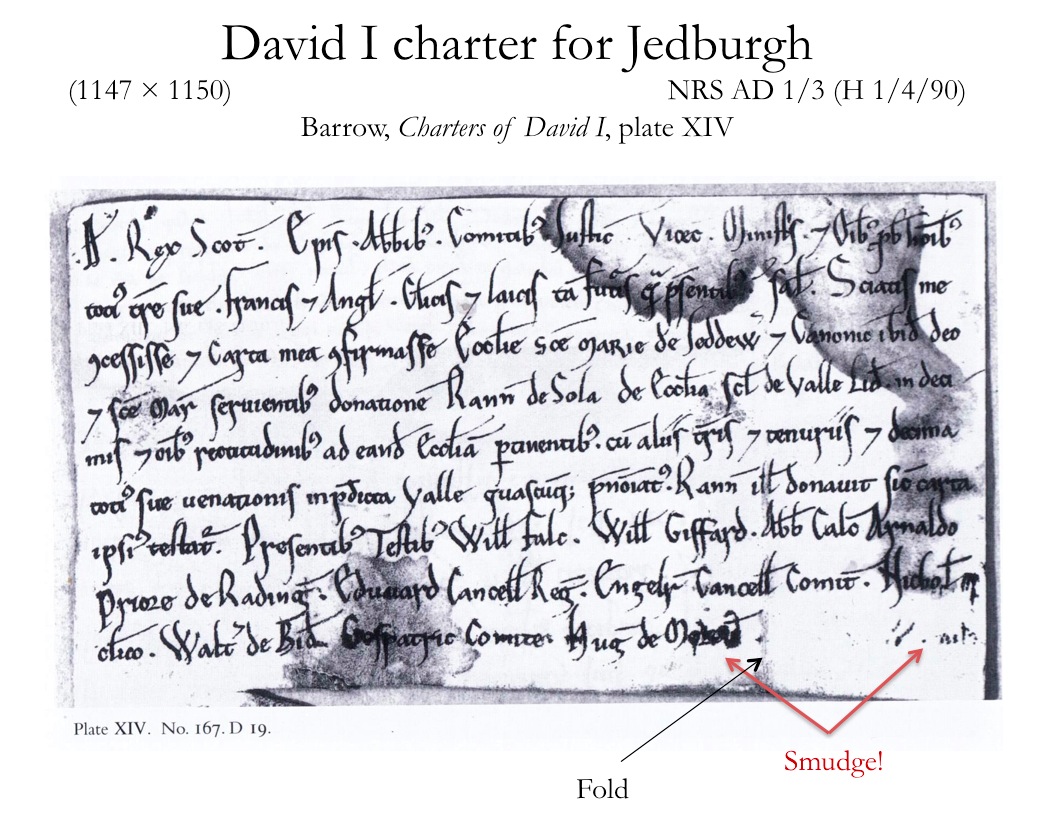 David I charter for Jedburgh
(1147 × 1150) NRS AD 1/3 (H 1/4/90)
Barrow, Charters of David I, plate XIV
Rex Scot. Epis. Abbib' Comitib' Justic Vicec. Ministris 7 Oib' hoib'
toci' tre sue. Francis 7 Angl. Clicis 7 laicis ta futis q psentib' sal. Sciatis me
9cessisse 7 Carta mea 9firmasse Ecclie sce MARIE de Jeddew 7 Canonic ibid deo
7 sce Mar servientib' donatione Rann de Sola de Ecclia scl de Valle Lid. in deci
mis 7 oib' rectitudinib' ad eand Ecclia ptinentib'. cu aliis tris 7 tenuriis 7 decima
toci' sue uenationis in pdicta Valle quascuq; pnoiat' Rann ill donauit sic carta
ipsi' testat. Presentib' Testib' Will Falc. Will Giffard. Abb Calc Arnaldo
Priore de Rading. Eduuard Cancell Reg. Engelr Cancell Comit. Nichol
clico. Walt de Bid. Gospatric Comite. Hug de
Plate XIV. No. 167. D 19.
Smudge!
Fold